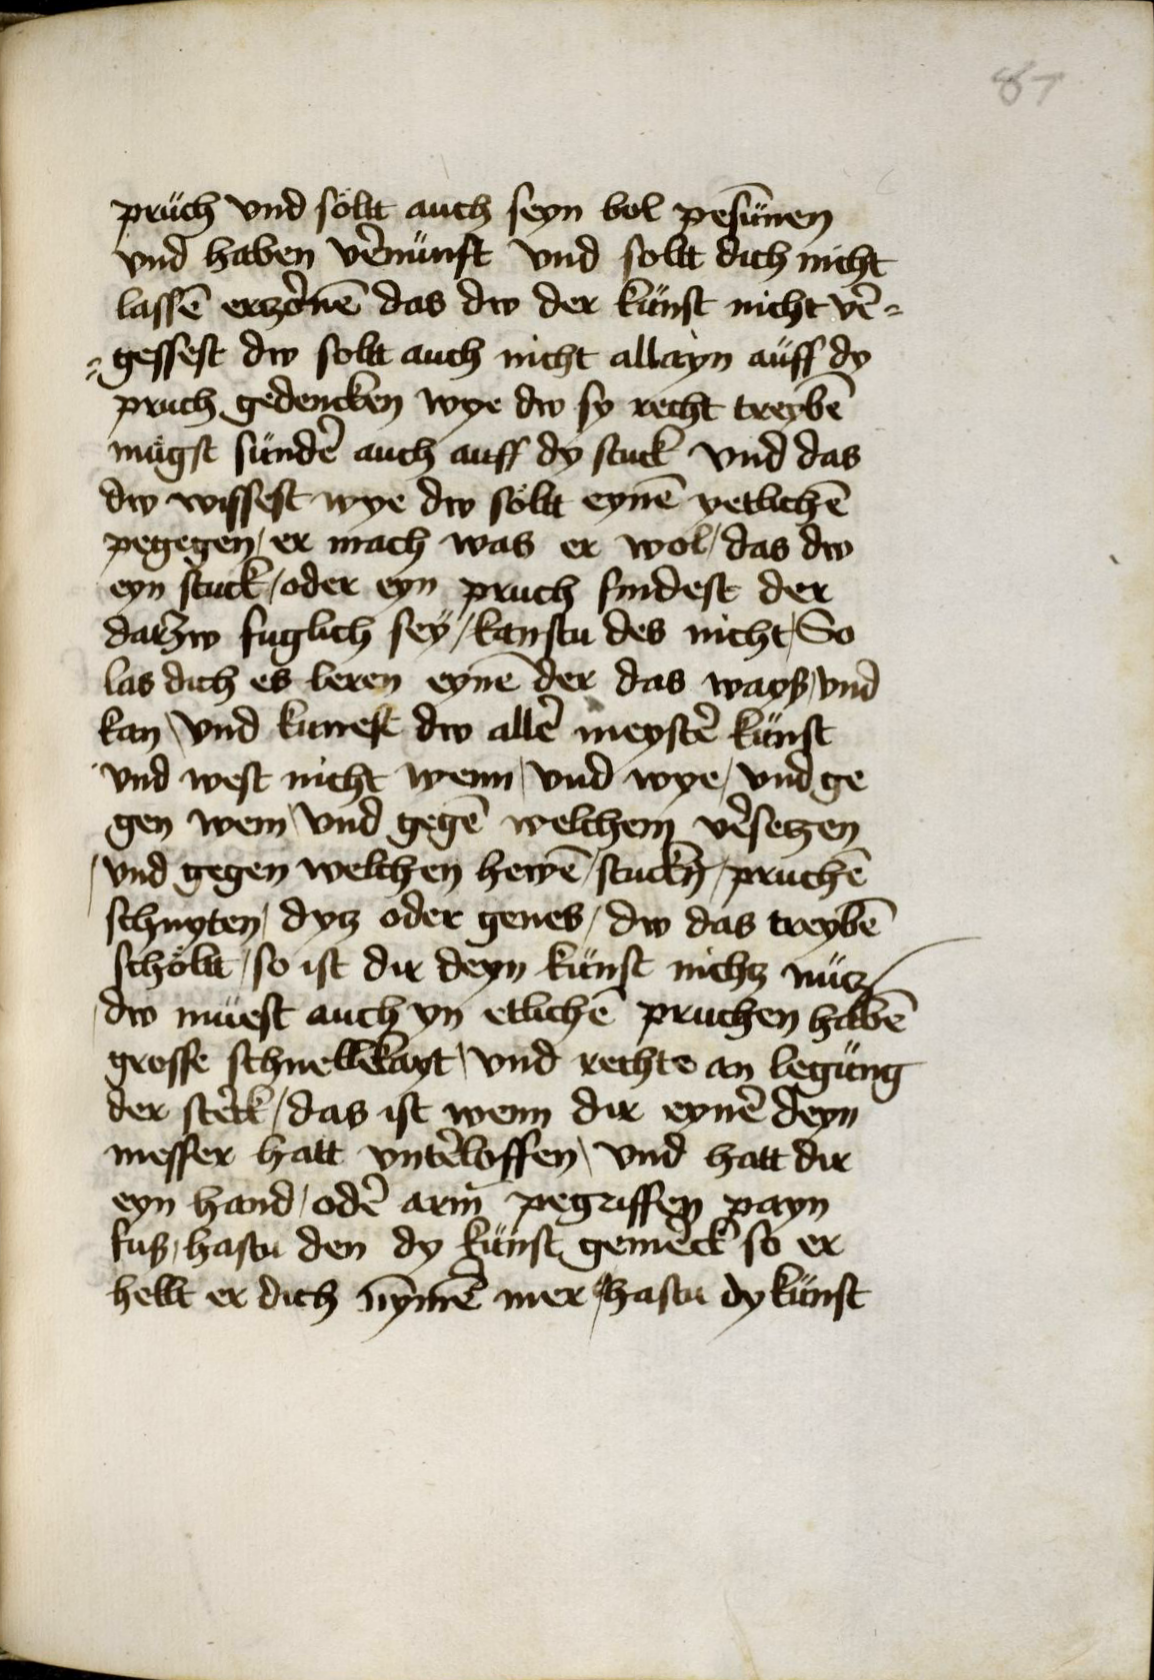 87
prüch vnd söllt auch seyn bol pesūnen
vnd haben vernünft vnd sollt dich nicht
lassē erzörnē das dw der künst nicht ver=
=gessest dw sollt auch nicht allayn aüff dy
pruch gedencken wye dw sy recht treybē
mägst sünder auch auff dy stuck vnd das
dw wissest wye dw söllt eynē yetlichē
pegegen / er mach was er wol / das dw
eyn stuck / oder eyn pruch findest der
darzw fuglich sey / kanstu des nicht / So
las dich es leren eynē der das wayß / vnd
kan / vnd kunest dw aller meyster künst
vnd west nicht wenn / vnd wye / vnd ge
gen wem / vnd gegē welchem versetzen
/ vnd gegen welchen hewē / stuckn / pruchē
schnyten / dytz oder genes / dw das treybē
schöllt / so ist dir deyn künst nichtz nütz /
dw müest auch yn etlichē pruchen habē
grosse schnellekayt / vnd rechte an legüng
der sterck / das ist wenn dir eyner deyn
messer hatt vnterloffen / vnd hatt dir
eyn hand / oder arm pegriffen payn
fuß / hastu den dy künst gemerckt so er
hellt er dich nymer mer / hastu dy künst